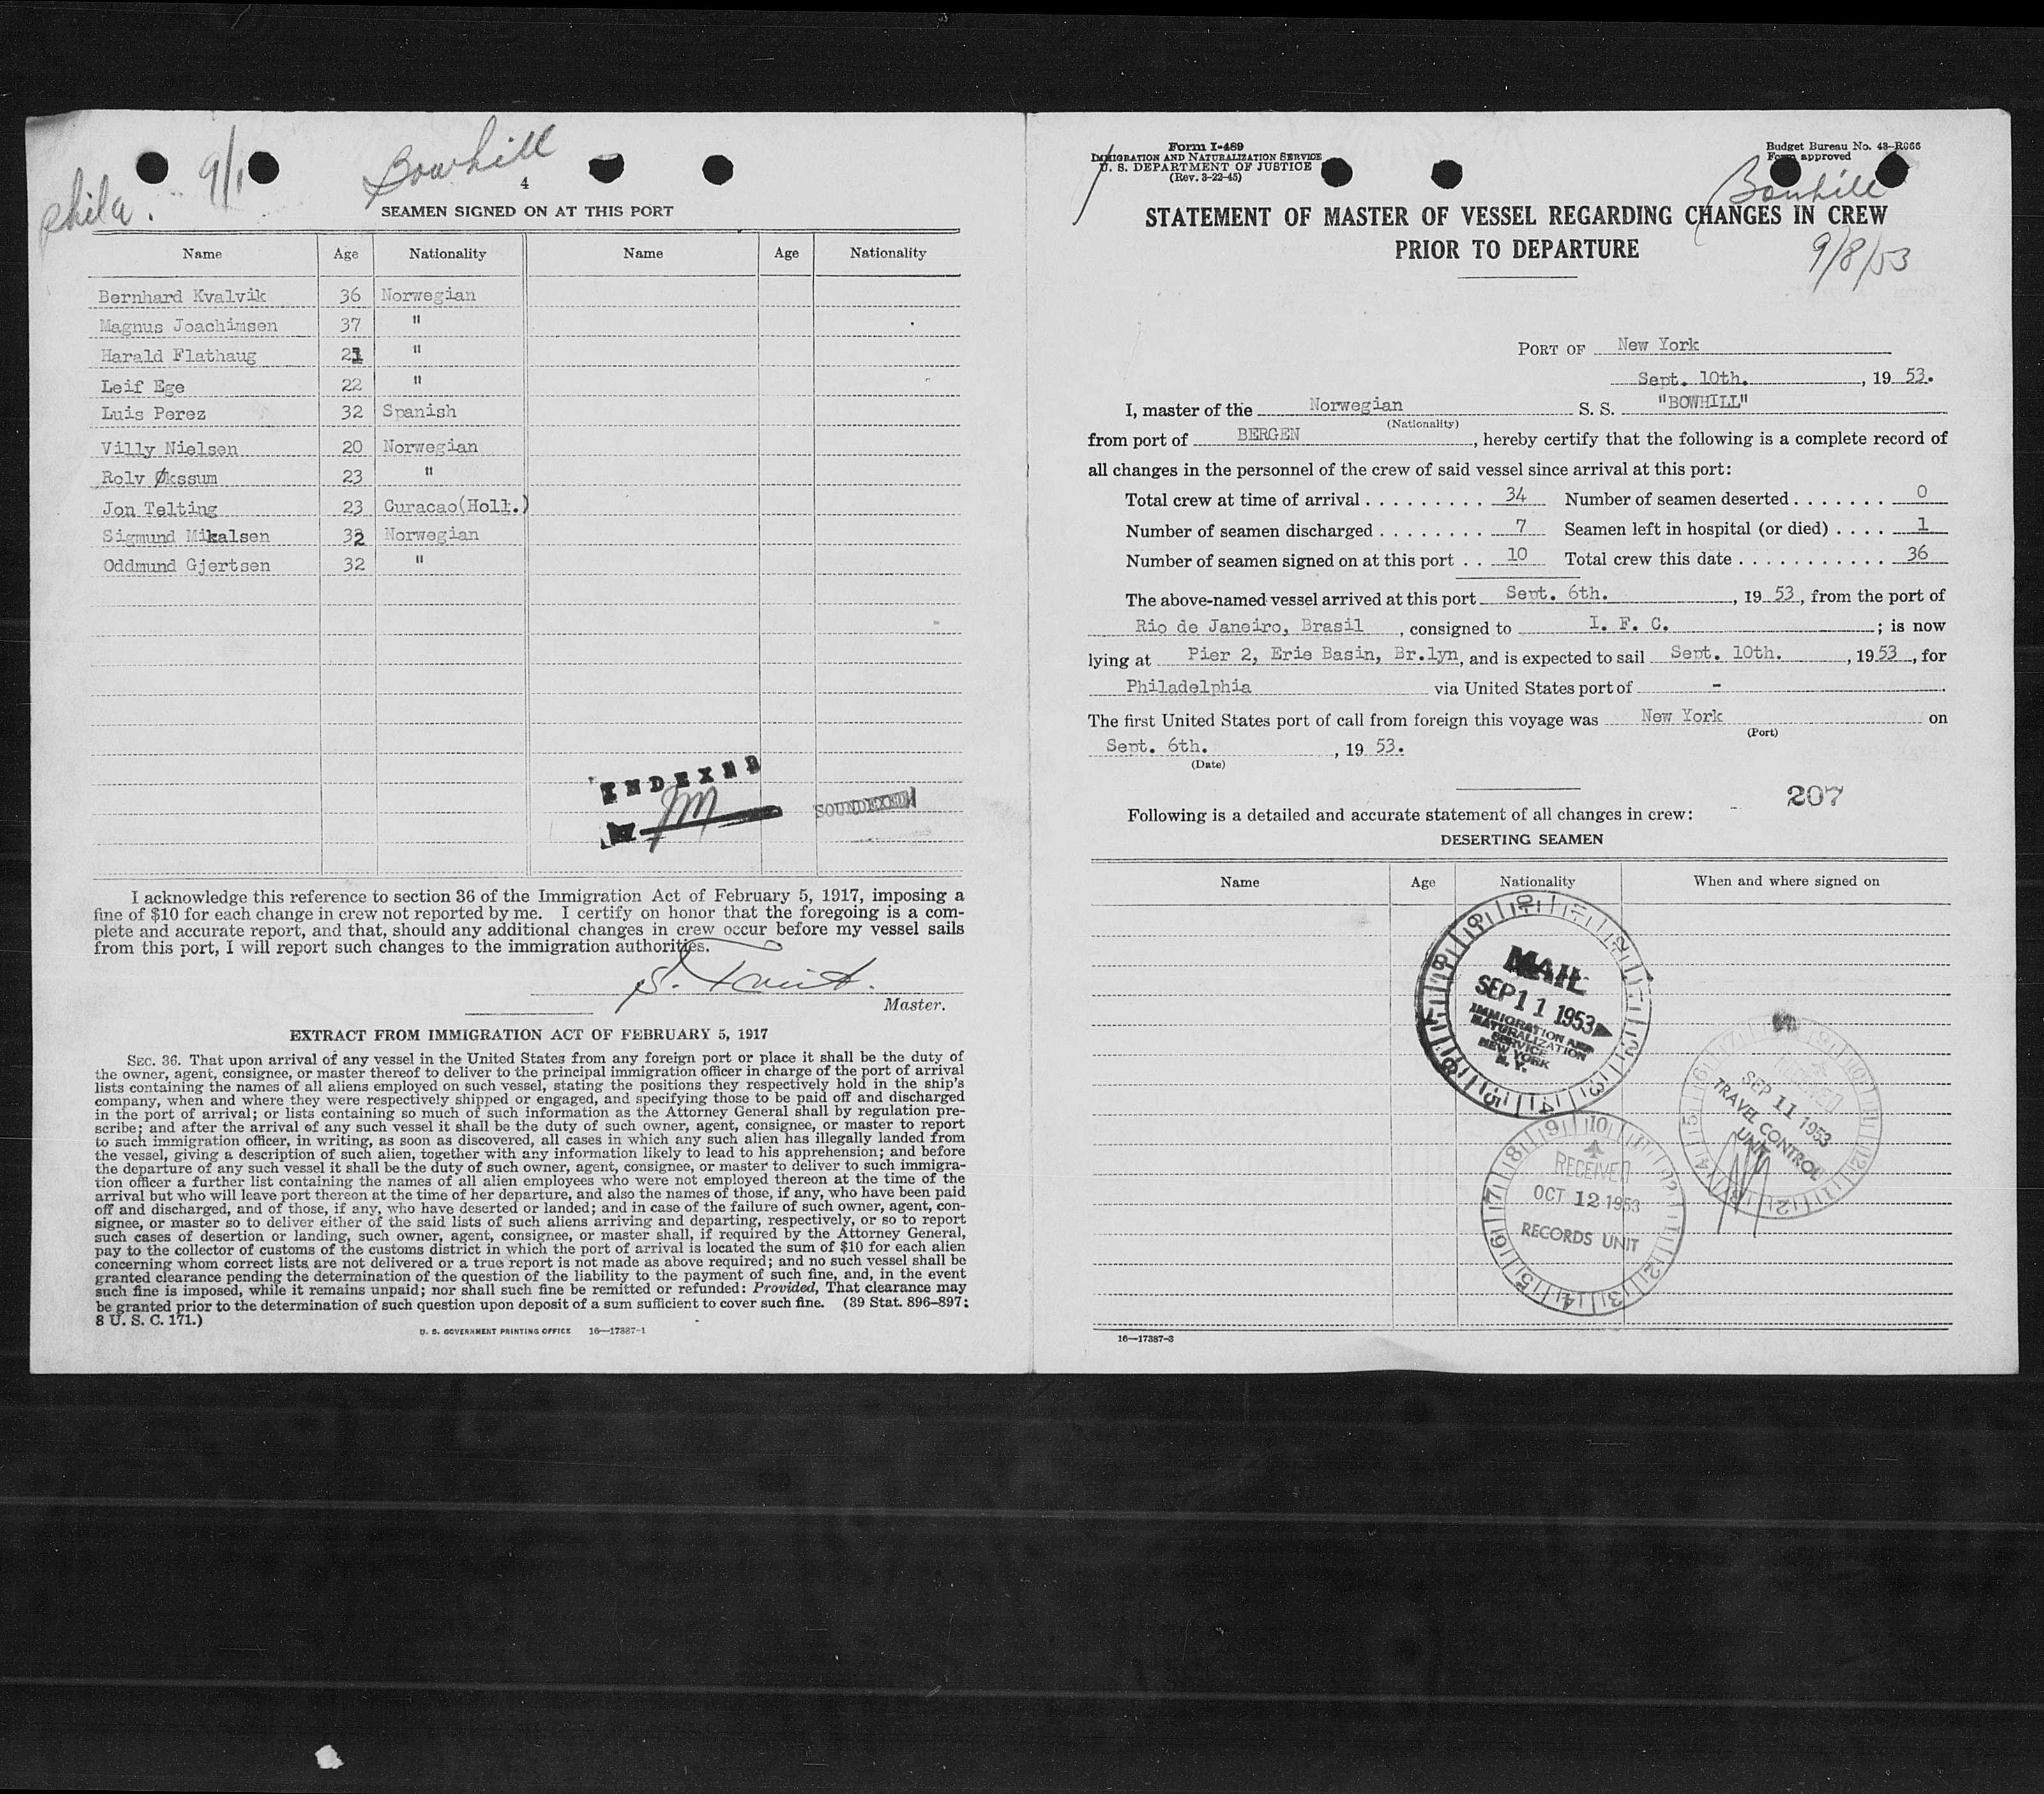 Phila. 9/1
Bowhill
4
SEAMEN SIGNED ON AT THIS PORT
Name Age Nationality Name Age Nationality
Bernhard Kvalvik 36 Norwegian
Magnus Joachimsen 37 "
Harald Flathaug 21 "
Leif Ege 22 "
Luis Perez 32 Spanish
Villy Nielsen 20 Norwegian
Rolv Økssum 23 "
Jon Telting 23 Curacao(Holl.)
Sigmund Mikalsen 32 Norwegian
Oddmund Gjertsen 32 "
INDEXED
JM
SOUNDEXED
I acknowledge this reference to section 36 of the Immigration Act of February 5, 1917, imposing a
fine of $10 for each change in crew not reported by me. I certify on honor that the foregoing is a com-
plete and accurate report, and that, should any additional changes in crew occur before my vessel sails
from this port, I will report such changes to the immigration authorities.
Master.
EXTRACT FROM IMMIGRATION ACT OF FEBRUARY 5, 1917
SEC. 36. That upon arrival of any vessel in the United States from any foreign port or place it shall be the duty of
the owner, agent, consignee, or master thereof to deliver to the principal immigration officer in charge of the port of arrival
lists containing the names of all aliens employed on such vessel, stating the positions they respectively hold in the ship's
company, when and where they were respectively shipped or engaged, and specifying those to be paid off and discharged
in the port of arrival; or lists containing so much of such information as the Attorney General shall by regulation pre-
scribe; and after the arrival of any such vessel it shall be the duty of such owner, agent, consignee, or master to report
to such immigration officer, in writing, as soon as discovered, all cases in which any such alien has illegally landed from
the vessel, giving a description of such alien, together with any information likely to lead to his apprehension; and before
the departure of any such vessel it shall be the duty of such owner, agent, consignee, or master to deliver to such immigra-
tion officer a further list containing the names of all alien employees who were not employed thereon at the time of the
arrival but who will leave port thereon at the time of her departure, and also the names of those, if any, who have been paid
off and discharged, and of those, if any, who have deserted or landed; and in case of the failure of such owner, agent, con-
signee, or master so to deliver either of the said lists of such aliens arriving and departing, respectively, or so to report
such cases of desertion or landing, such owner, agent, consignee, or master shall, if required by the Attorney General,
pay to the collector of customs of the customs district in which the port of arrival is located the sum of $10 for each alien
concerning whom correct lists are not delivered or a true report is not made as above required; and no such vessel shall be
granted clearance pending the determination of the question of the liability to the payment of such fine, and, in the event
such fine is imposed, while it remains unpaid; nor shall such fine be remitted or refunded: Provided, That clearance may
be granted prior to the determination of such question upon deposit of a sum sufficient to cover such fine. (39 Stat. 896–897;
8 U. S. C. 171.)
U. S. GOVERNMENT PRINTING OFFICE 16—17387-1
Form I-489
IMMIGRATION AND NATURALIZATION SERVICE
U. S. DEPARTMENT OF JUSTICE
(Rev. 3-22-45)
Budget Bureau No. 43-R066
Form approved
Bowhill
STATEMENT OF MASTER OF VESSEL REGARDING CHANGES IN CREW
PRIOR TO DEPARTURE
9/8/53
PORT OF New York
Sept. 10th. , 19 53.
I, master of the Norwegian S. S. "BOWHILL"
(Nationality)
from port of BERGEN , hereby certify that the following is a complete record of
all changes in the personnel of the crew of said vessel since arrival at this port:
Total crew at time of arrival . . . . . . . . . 34 Number of seamen deserted . . . . . . . 0
Number of seamen discharged . . . . . . . . 7 Seamen left in hospital (or died) . . . . 1
Number of seamen signed on at this port . . 10 Total crew this date . . . . . . . . . . . 36
The above-named vessel arrived at this port Sept. 6th. , 19 53, from the port of
Rio de Janeiro, Brasil , consigned to I. F. C. ; is now
lying at Pier 2, Erie Basin, Br.lyn, and is expected to sail Sept. 10th. , 19 53, for
Philadelphia via United States port of -
The first United States port of call from foreign this voyage was New York on
(Port)
Sept. 6th. , 19 53.
(Date)
207
Following is a detailed and accurate statement of all changes in crew:
DESERTING SEAMEN
Name Age Nationality When and where signed on
MAIL
SEP 11 1953
IMMIGRATION AND
NATURALIZATION
SERVICE
NEW YORK
N. Y.
RECEIVED
SEP 11 1953
TRAVEL CONTROL
UNIT
RECEIVED
OCT 12 1953
RECORDS UNIT
16—17387-3